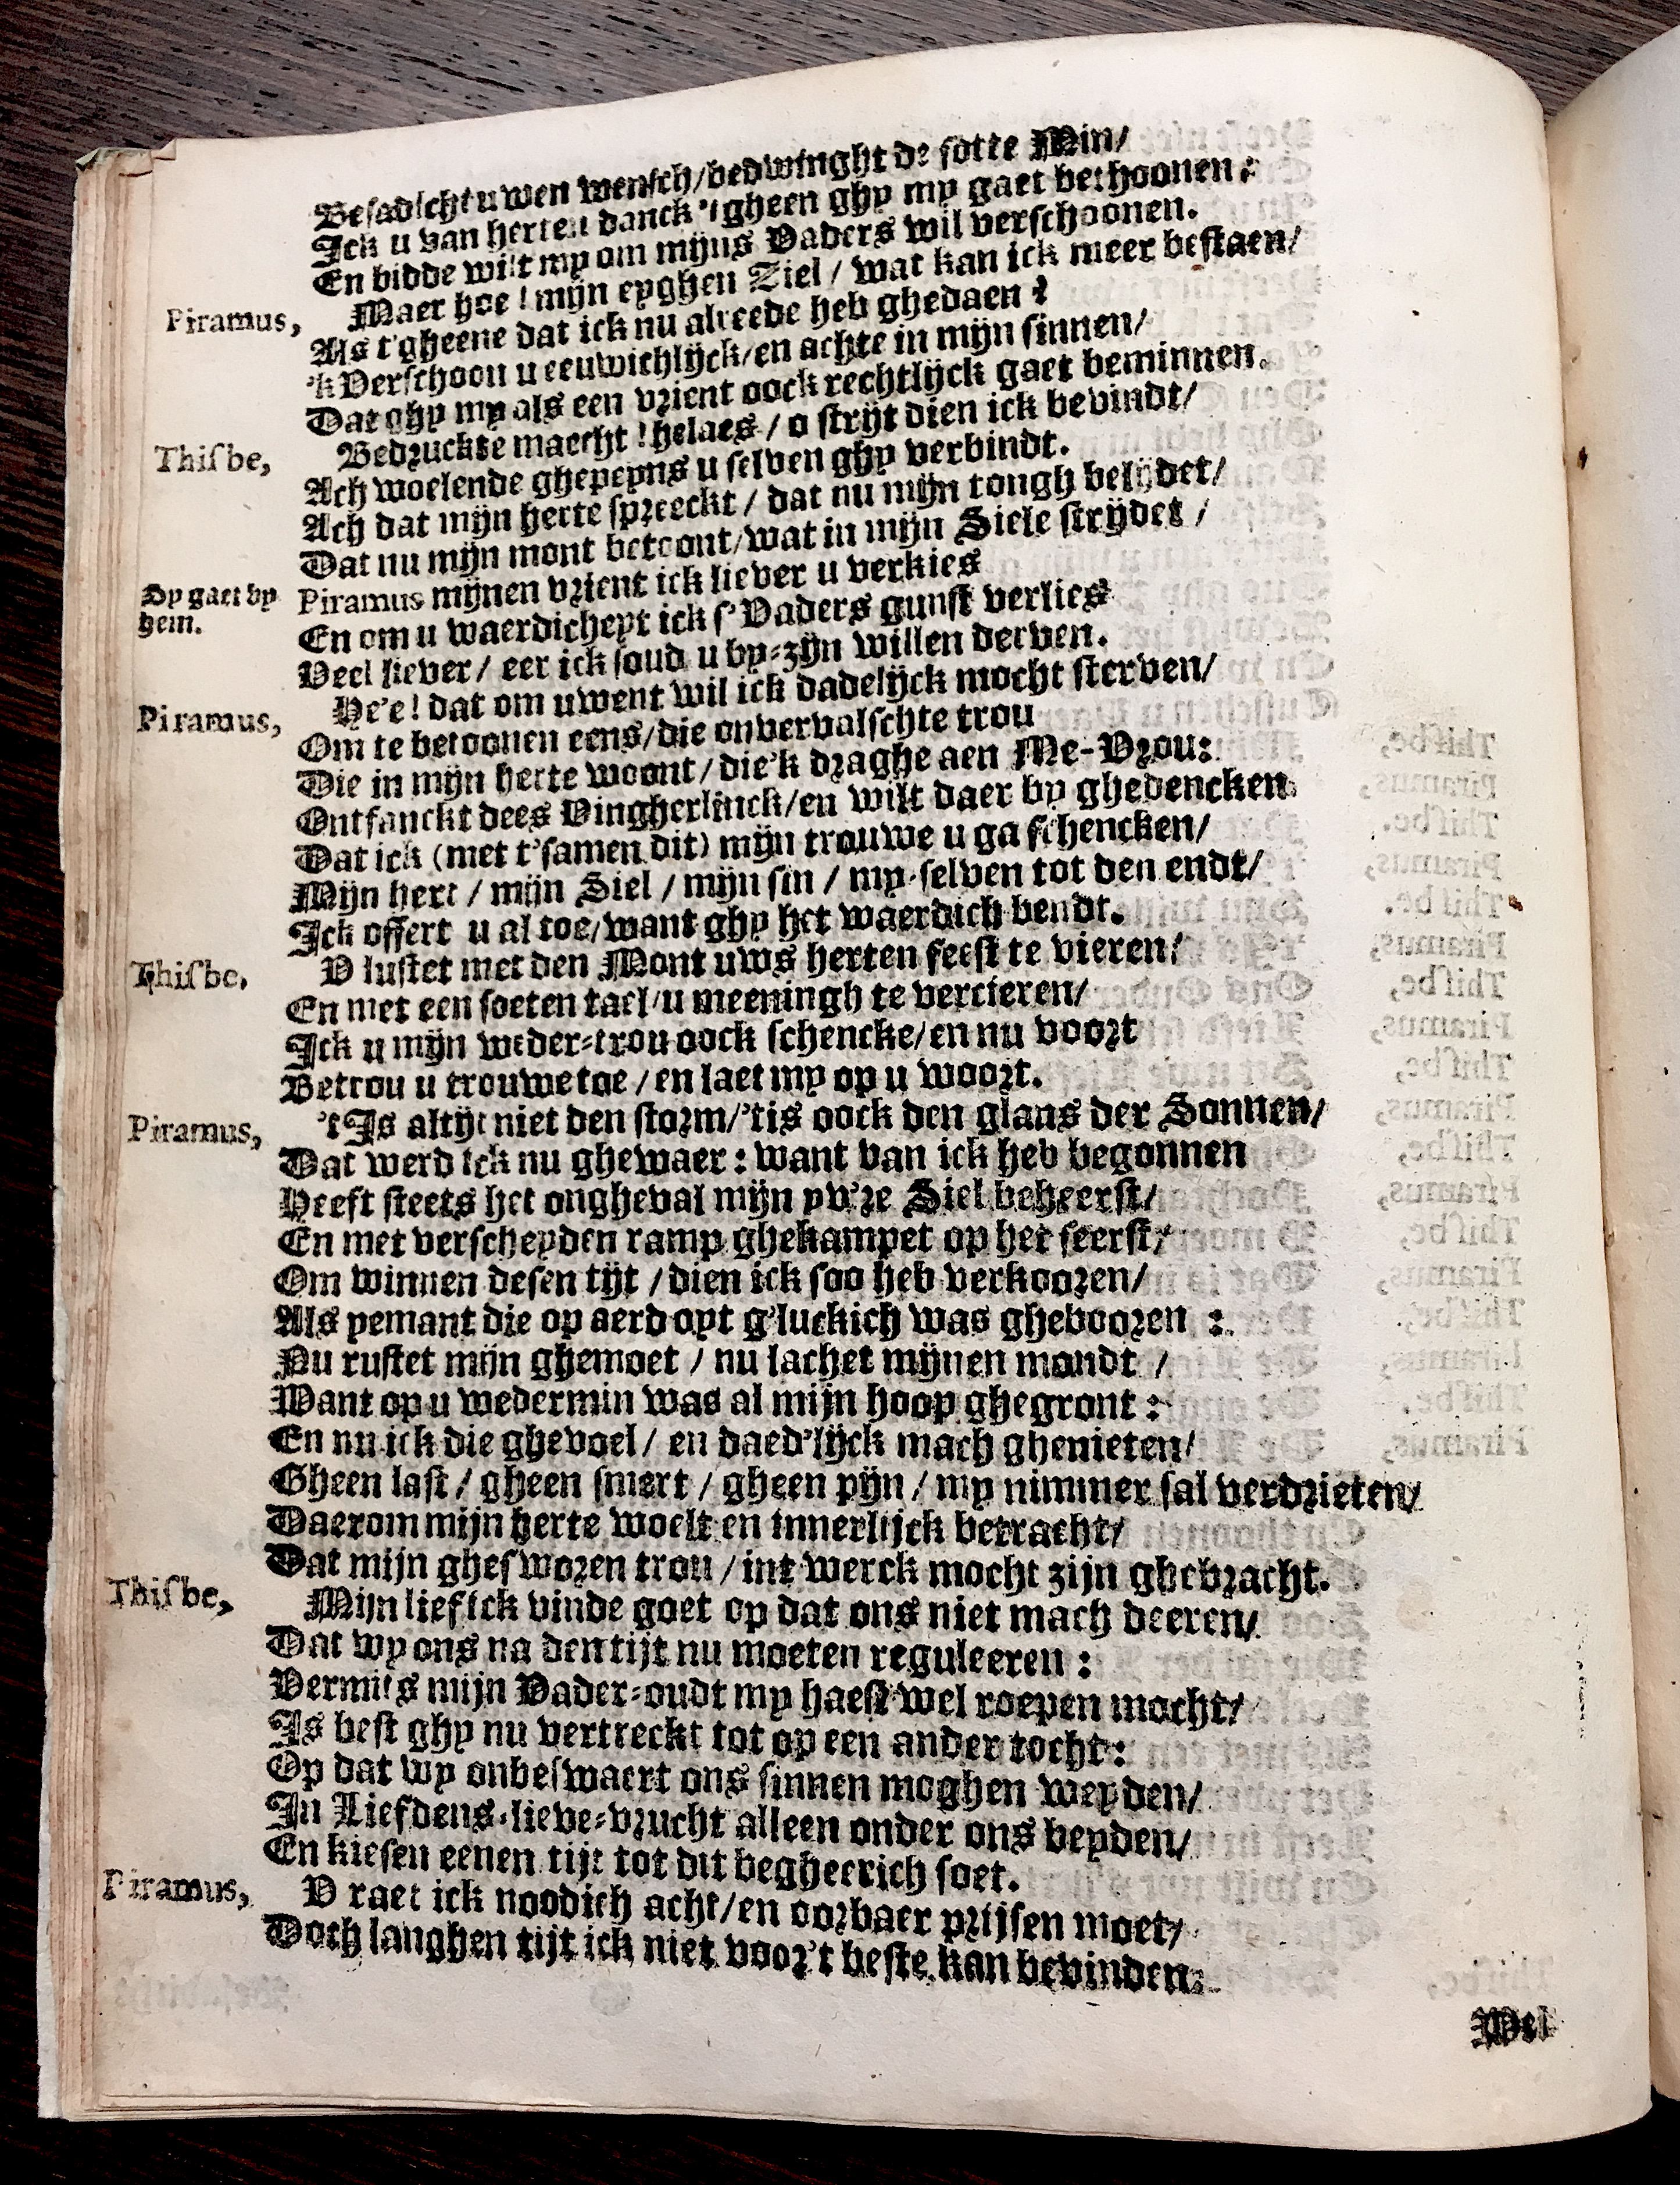 Besadicht uwen wensch/bedwinght de sotte Min/
Ick u van herten danck 't gheen ghy my gaet bethoonen:
En bidde wilt my om mijns Vaders wil verschoonen.
Piramus, Maer hoe! mijn eyghen Ziel / wat kan ick meer bestaen/
Als t'gheene dat ick nu alreede heb ghedaen?
'k Verschoon u eeuwichlijck/en achte in mijn sinnen/
Dat ghy my als een vrient oock rechtlijck gaet beminnen.
Thisbe, Bedruckte maecht! helaes / o strijt dien ick bevindt/
Ach woelende ghepeyns u selven ghy verbindt.
Ach dat mijn herte spreeckt / dat nu mijn tongh belijdet/
Dat nu mijn mont betoont/wat in mijn Siele strijdet /
Sy gaet by hem. Piramus mijnen vrient ick liever u verkies
En om u waerdicheyt ick s'Vaders gunst verlies
Veel liever / eer ick soud u by-zijn willen derven.
Piramus, He'e! dat om uwent wil ick dadelijck mocht sterven/
Om te betoonen eens/die onvervalschte trou
Die in mijn herte woont/die'k draghe aen Me-Vrou:
Ontfanckt dees Vingherlinck/en wilt daer by ghedencken
Dat ick (met t'samen dit) mijn trouwe u ga schencken/
Mijn hert / mijn Siel / mijn sin / my-selven tot den endt/
Ick offert u al toe/want ghy het waerdich bendt.
Thisbe. U lustet met den Mont uws herten feest te vieren/
En met een soeten tael/u meeningh te vercieren/
Ick u mijn weder-trou oock schencke/en nu voort
Betrou u trouwe toe/en laet my op u woort.
Piramus, 't Is altijt niet den storm/'tis oock den glans der Sonnen/
Dat werd ick nu ghewaer: want van ick heb begonnen
Heeft steets het ongheval mijn yv're Siel beheerst/
En met verscheyden ramp ghekampet op het seerst/
Om winnen desen tijt / dien ick soo heb verkooren/
Als yemant die op aerd oyt g'luckich was ghebooren :
Nu rustet mijn ghemoet / nu lachet mijnen mondt /
Want op u wedermin was al mijn hoop ghegront:
En nu ick die ghevoel/ en daed'lijck mach ghenieten/
Gheen last / gheen smert / gheen pijn / my nimmer sal verdrieten/
Daerom mijn herte woelt en innerlijck betracht/
Dat mijn ghesworen trou/int werck mocht zijn ghebracht.
Thisbe, Mijn lief ick vinde goet op dat ons niet mach deeren/
Dat wy ons na den tijt nu moeten reguleeren :
Vermits mijn Vader-oudt my haest wel roepen mocht/
Is best ghy nu vertreckt tot op een ander tocht:
Op dat wy onbeswaert ons sinnen moghen weyden/
In Liefdens-lieve-vrucht alleen onder ons beyden/
En kiesen eenen tijt tot dit begheerich soet.
Piramus, U raet ick noodich acht/en oorbaer prijsen moet/
Doch langhen tijt ick niet voor't beste kan bevinden:
Wel